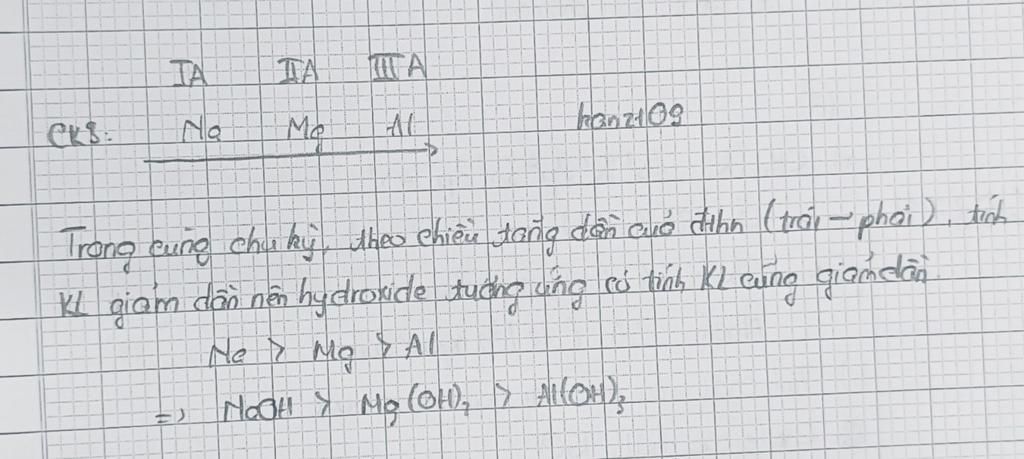 IA IIA IIIA
CK3: Na Mg Al hanz109
Trong cùng chu kỳ, theo chiều tăng dần của đthn (trái - phải), tính
KL giảm dần nên hydroxide tương ứng có tính KL cũng giảm dần.
Na > Mg > Al
=> NaOH > Mg(OH)₂ > Al(OH)₃